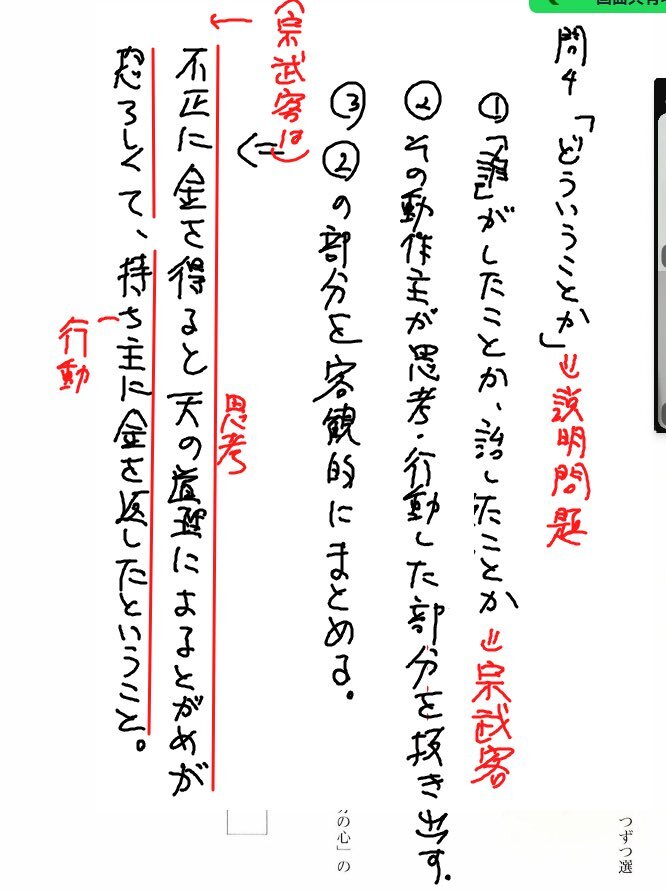 問4 「どういうことか」⇒説明問題
①「誰」がしたことか、話したことか⇒宗武客
②その動作主が思考・行動した部分を抜き出す。
③②の部分を客観的にまとめる。
⇒
(宗武客は)
不正に金を得ると天の道理によるとがめが
思考
恐ろしくて、持ち主に金を返したということ。
行動
つずつ選
の心」の